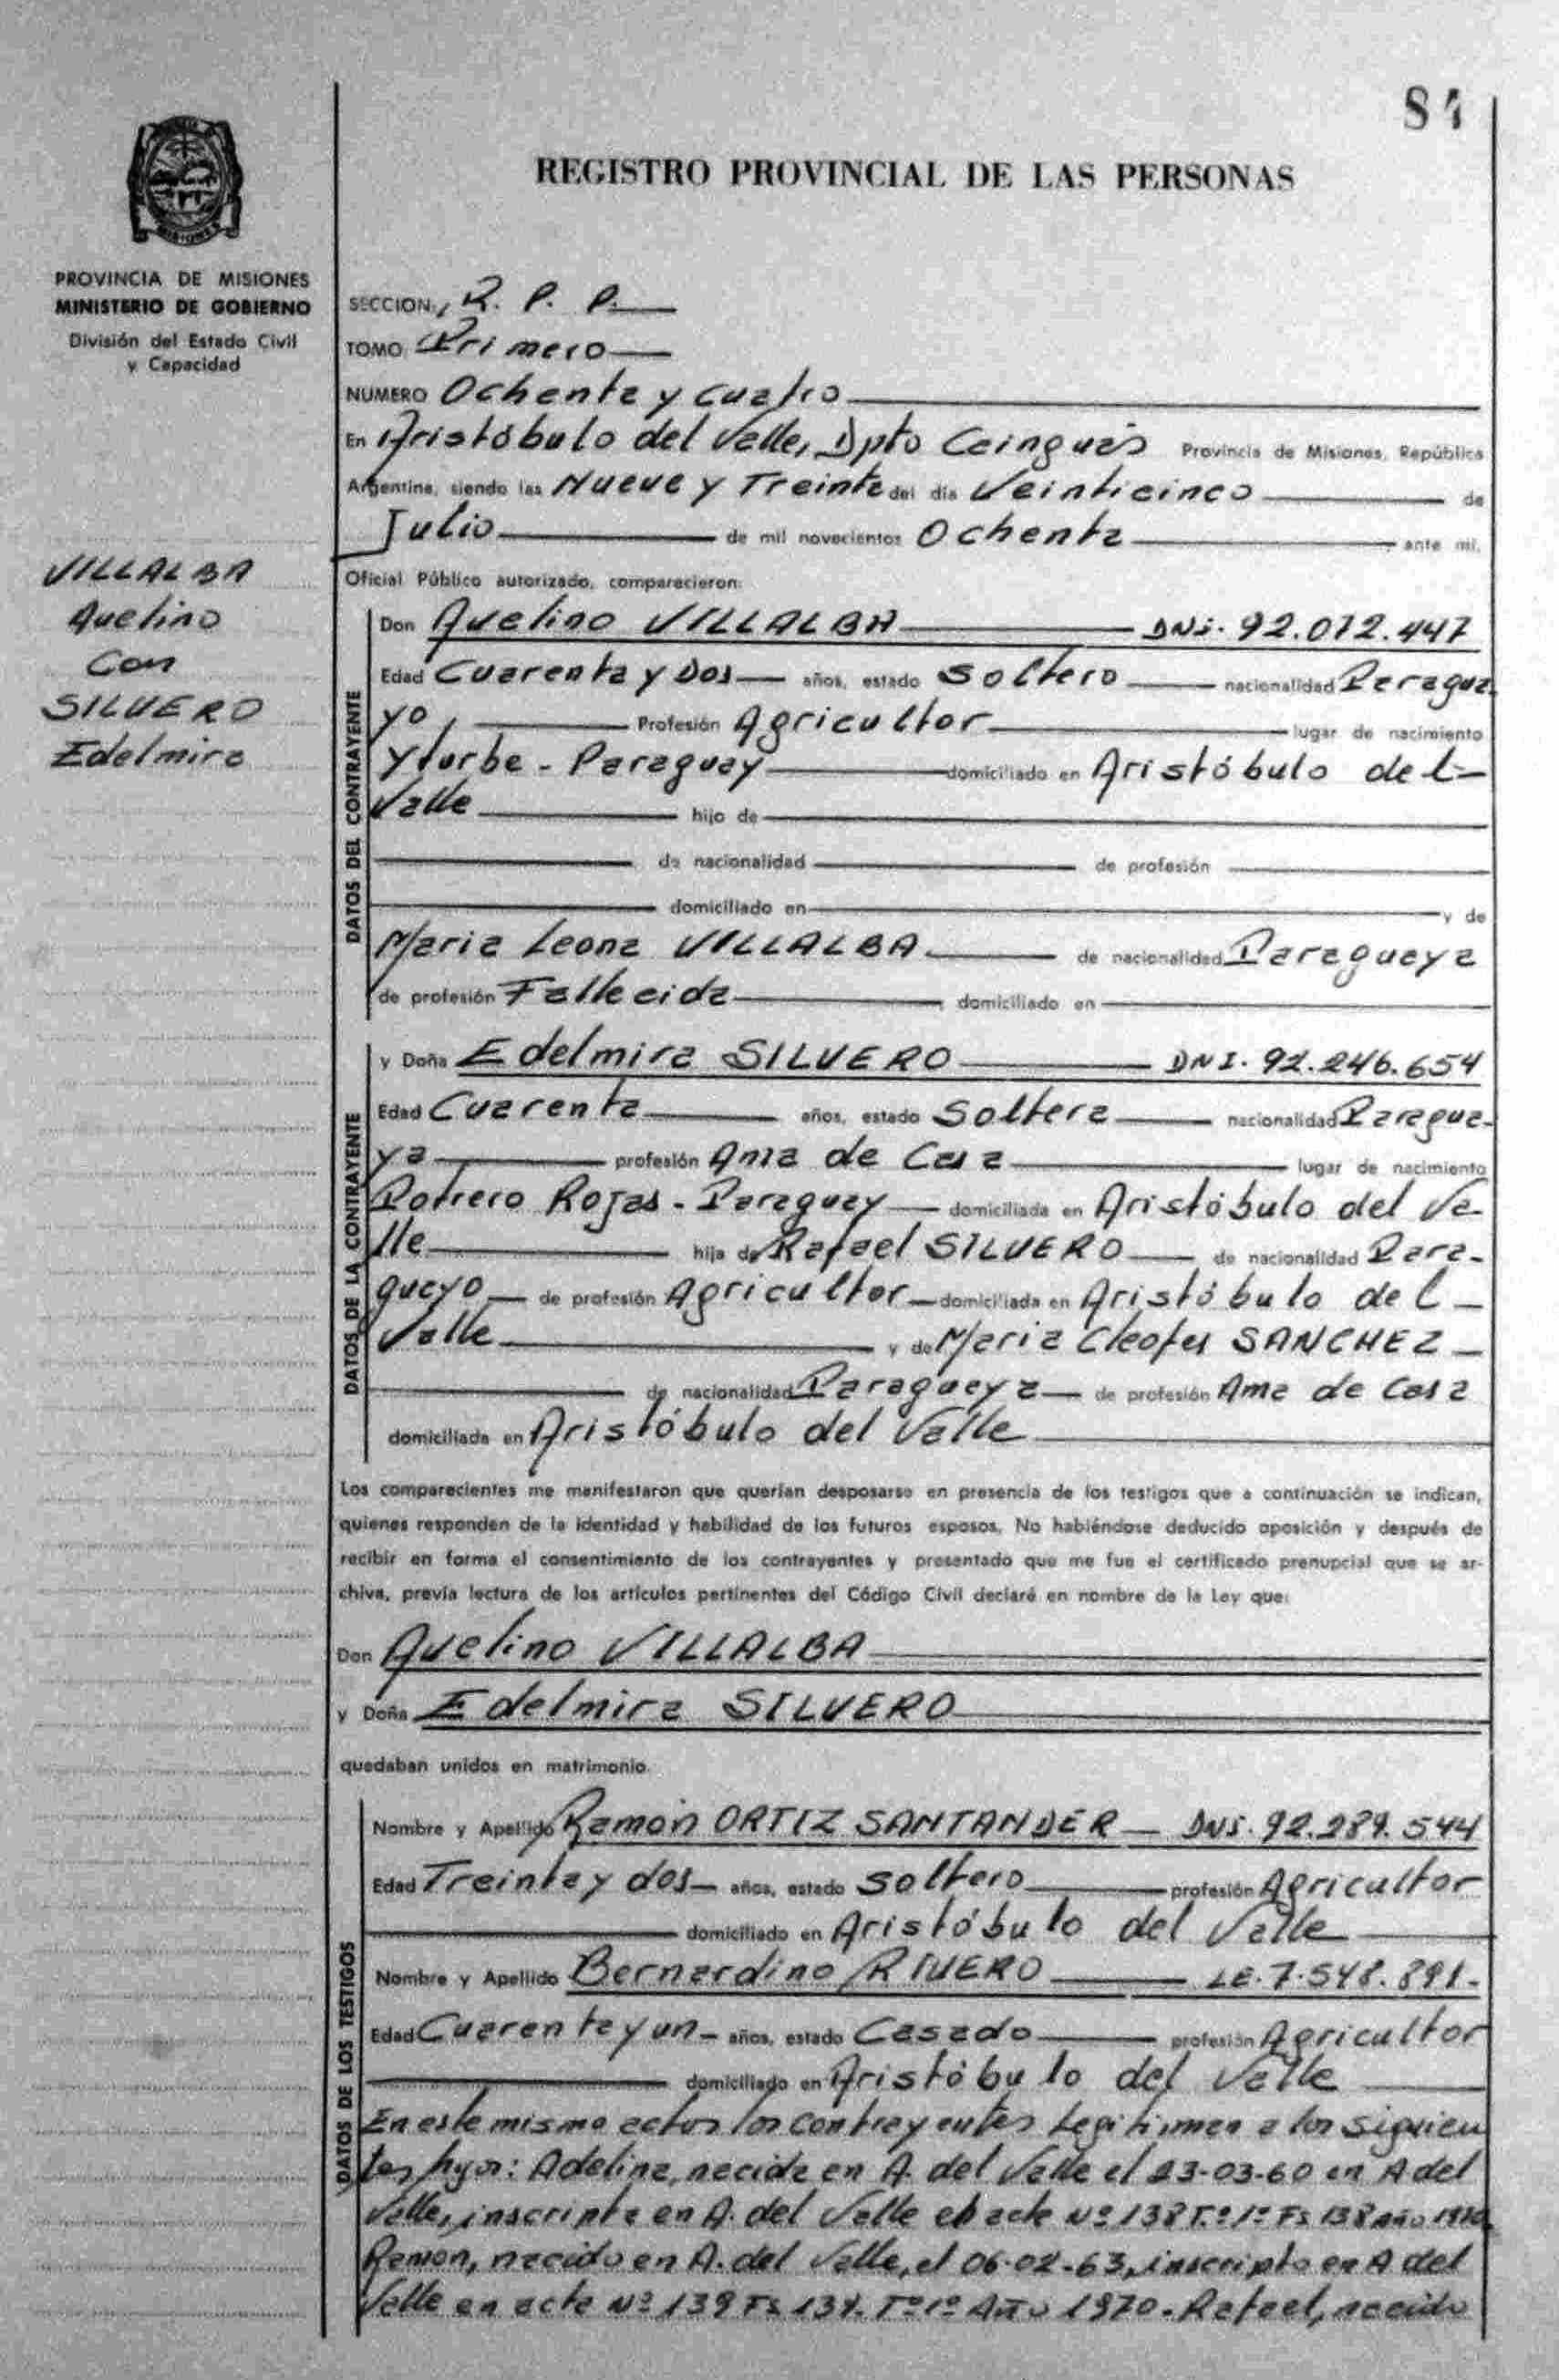 84
REGISTRO PROVINCIAL DE LAS PERSONAS
MISIONES
PROVINCIA DE MISIONES
MINISTERIO DE GOBIERNO
División del Estado Civil
y Capacidad
SECCION: R. P. P.
TOMO Primero
NUMERO Ochenta y cuatro
En Aristóbulo del Valle, Dpto Caingúas Provincia de Misiones, República
Argentina, siendo las Nueve y Treinta del día Veinticinco de
Julio de mil novecientos Ochenta ante mí,
Oficial Público autorizado, comparecieron:
VILLALBA
Avelino
Con
SILVERO
Edelmira
DATOS DEL CONTRAYENTE
Don Avelino VILLALBA DNI. 92.072.447
Edad Cuarenta y Dos años, estado Soltero nacionalidad Paragua
yo, Profesión Agricultor lugar de nacimiento
Yturbe - Paraguay domiciliado en Aristóbulo del
Valle hijo de
de nacionalidad de profesión
domiciliado en y de
Maria Leona VILLALBA de nacionalidad Paraguaya
de profesión Fallecida domiciliado en
DATOS DE LA CONTRAYENTE
y Doña Edelmira SILVERO DNI. 92.246.654
Edad Cuarenta años, estado Soltera nacionalidad Paragua-
ya profesión Ama de Casa lugar de nacimiento
Potrero Rojas - Paraguay domiciliada en Aristóbulo del Va-
lle hija de Rafael SILVERO de nacionalidad Para-
guayo de profesión Agricultor domiciliada en Aristóbulo del
Valle y de Maria Cleofes SANCHEZ
de nacionalidad Paraguaya de profesión Ama de Casa
domiciliada en Aristóbulo del Valle
Los comparecientes me manifestaron que querían desposarse en presencia de los testigos que a continuación se indican,
quienes responden de la identidad y habilidad de los futuros esposos. No habiéndose deducido oposición y después de
recibir en forma el consentimiento de los contrayentes y presentado que me fue el certificado prenupcial que se ar-
chiva, previa lectura de los artículos pertinentes del Código Civil declaré en nombre de la Ley que:
Don Avelino VILLALBA
y Doña Edelmira SILVERO
quedaban unidos en matrimonio.
DATOS DE LOS TESTIGOS
Nombre y Apellido Ramón ORTIZ SANTANDER DNI. 92.289.544
Edad Treinta y dos años, estado Soltero profesión Agricultor
domiciliado en Aristóbulo del Valle
Nombre y Apellido Bernardino RIVERO LE. 7.548.891.
Edad Cuarenta y un años, estado Casado profesión Agricultor
domiciliado en Aristóbulo del Valle
En este mismo acto los contrayentes legitiman a los siguien
tes hijos: Adelina, nacida en A. del Valle el 23-03-60 en A del
Valle, inscripta en A. del Valle acta Nº 138 Tº 1º Fs 138 año 1970
Ramon, nacido en A. del Valle, el 06-02-63, inscripto en A del
Valle en acta Nº 139 Fs Tº 1º Año 1970. Rafael, nacido